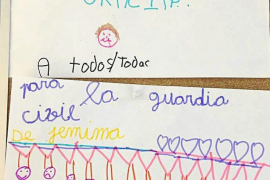 A todos/todas
para
la guardia
civil
De jemima